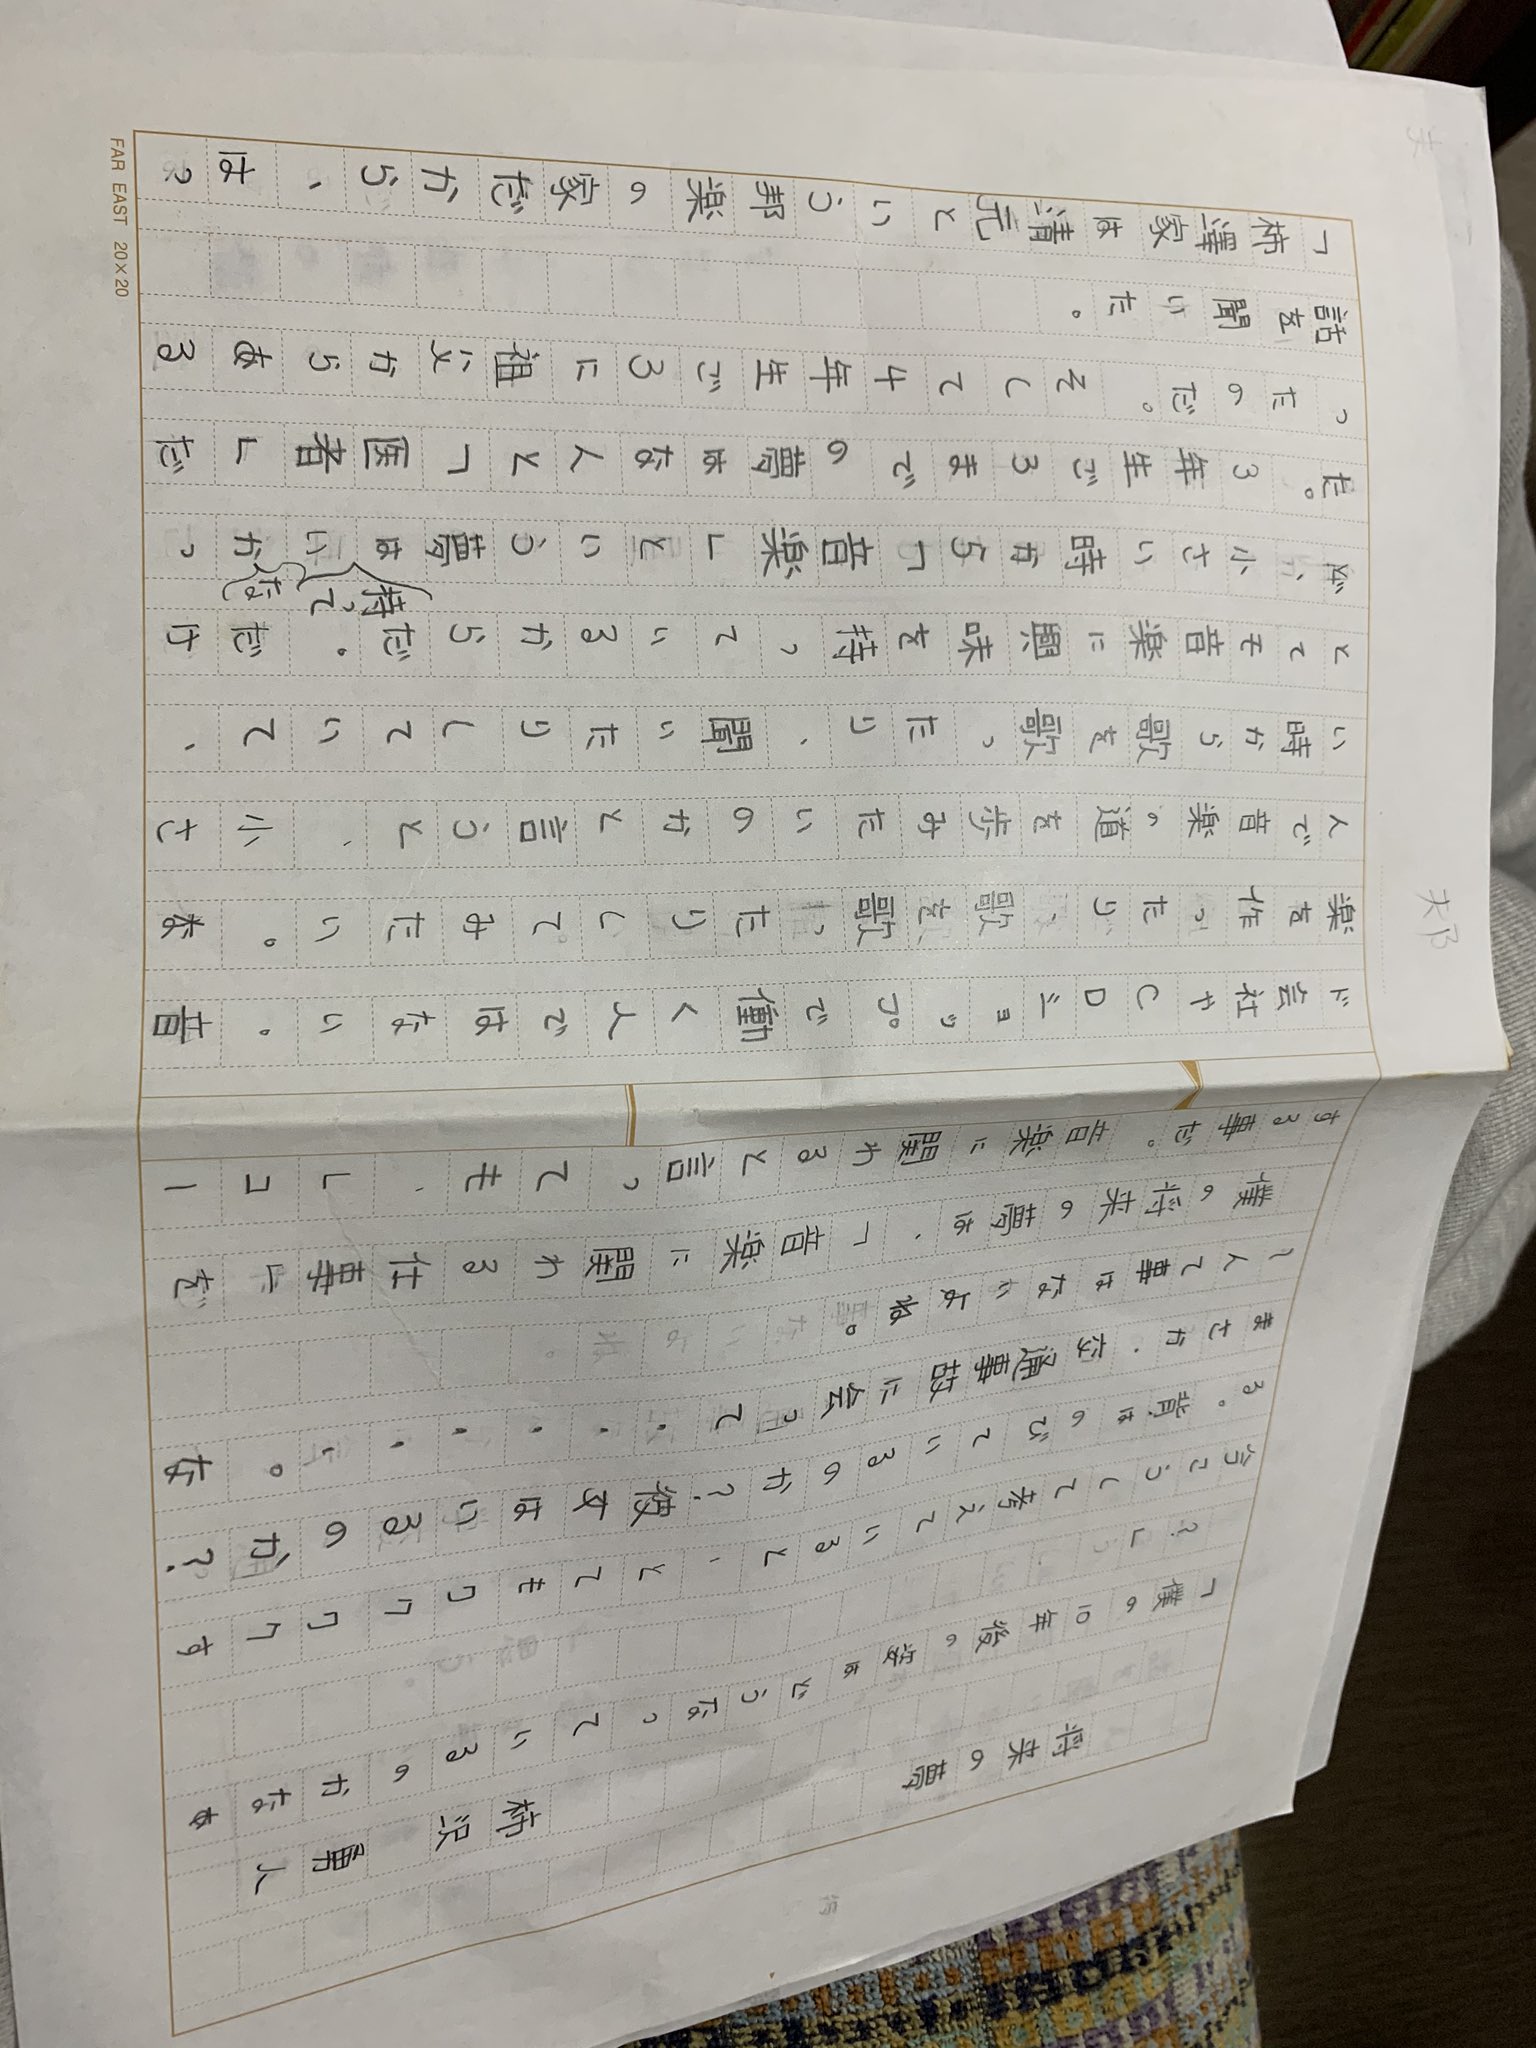 将来の夢
柿沢 勇人
「僕の10年後の姿はどうなっているのかなぁ
?」
今こうして考えていると、とてもワクワクす
る。背はのびているのか?彼女はいるのか?
まさか、交通事故に会って・・・・・。な
ーんて事はないよね。
僕の将来の夢は、「音楽に関わる仕事」を
する事だ。音楽に関わると言っても、レコー
ド会社やCDショップで働く人ではない。音
楽を作ったり、歌を歌ったりしてみたい。な
んで音楽の道を歩みたいのかと言うと、小さ
い時から歌を歌ったり、聞いたりしていて、
とても音楽に興味を持っているからだ。だけ
持って な
ど、小さい時から「音楽」という夢はいかっ
た。3年生ごろまでの夢はなんと「医者」だ
ったのだ。そして4年生ごろに祖父からある
話を聞いた。
「柿澤家は清元という邦楽の家だから、は?
FAR EAST 20×20